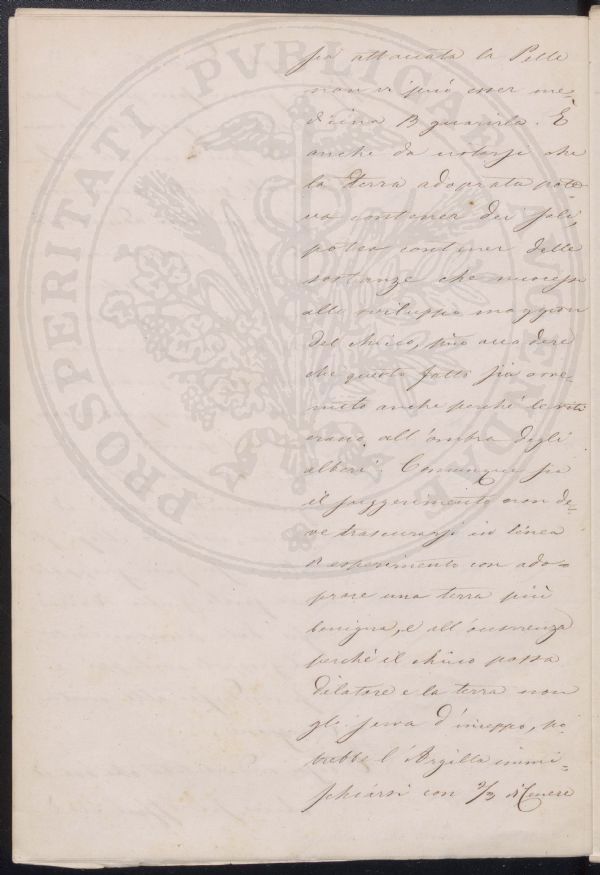 sia attaccata la Pelle
non vi può esser me-
dicina p guarirla. È
anche da notarsi che
la Terra adoprata pote-
va contener dei sali,
potea contener delle
sostanze che nuocesse
allo sviluppo maggiore
del chicco, può accadere
che questo fatto sia avve-
nuto anche perché le viti
erano all'ombra degli
alberi. Comunque sia
il suggerimento non de-
ve trascurarsi in linea
d'esperimento con ado-
prare una terra più
benigna, e all'occorrenza
perchè il chicco possa
dilatare e la terra non
gli serva d'inceppo, po-
trebbe l'Argilla immi-
schiarsi con 2/3 di Cenere
PROSPERITATI PVBLICAE AVGENDAE